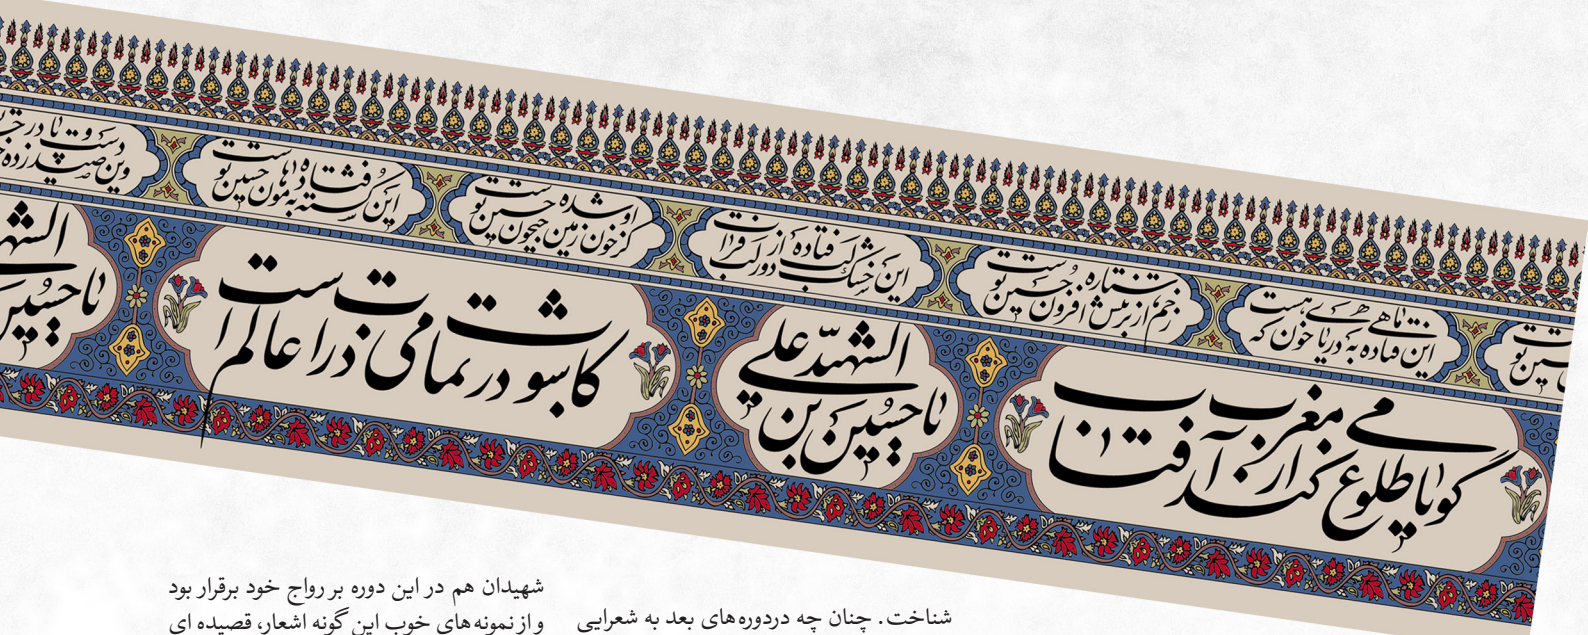 این ماهی فتاده به دریای خون که هست
زخم از ستاره بر تنش افزون حسین توست
این خشک لب فتاده دور از لب فرات
کز خون او زمین شده جیحون حسین توست
این کشته فتاده به هامون حسین توست
وین صید دست و پا زده در
گویا طلوع می کند از مغرب آفتاب
یا حسین بن علی الشهید
کاشوب در تمامی ذرات عالم است
یا حسین
شناخت. چنان چه دردوره‌های بعد به شعرایی
شهیدان هم در این دوره بر رواج خود برقرار بود
و از نمونه‌های خوب این گونه اشعار، قصیده ای